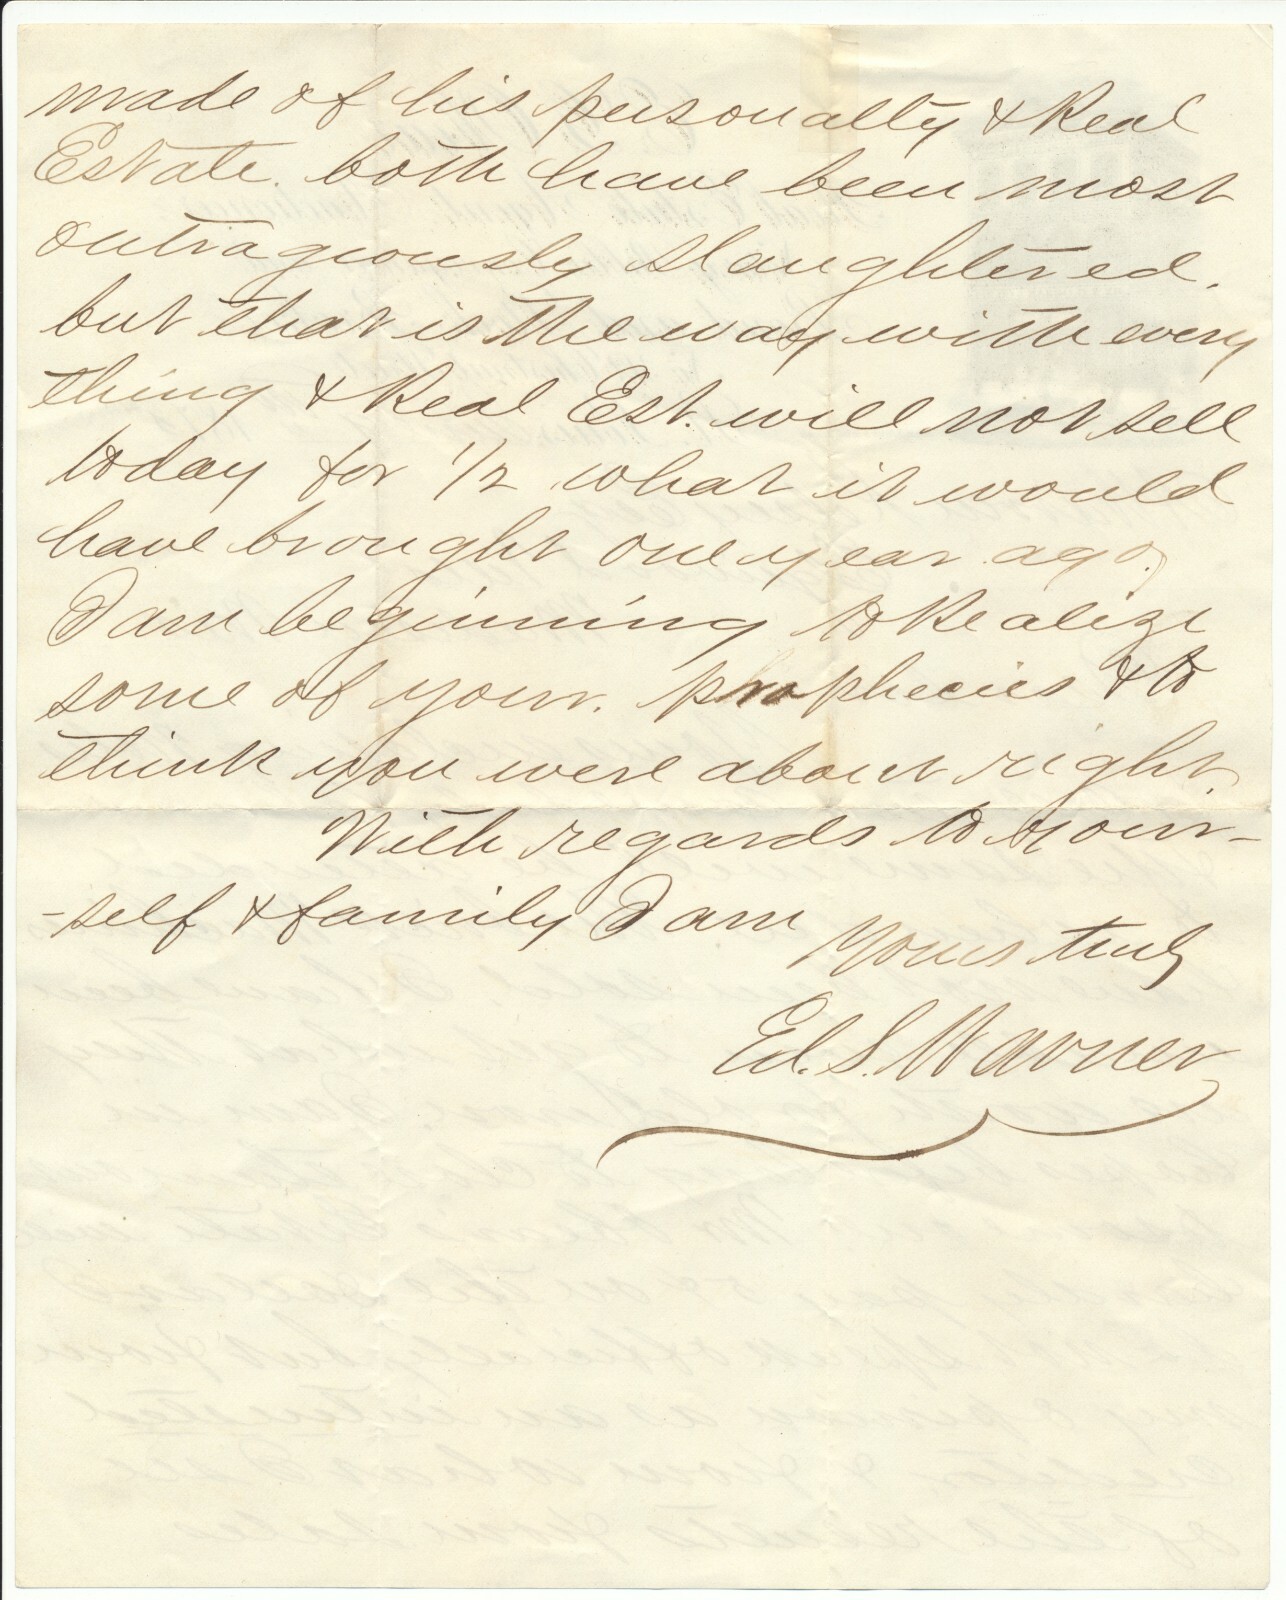 made of his personalty & Real
Estate. both have been most
outrageously slaughtered.
but that is the way with every
thing & Real Est. will not sell
today for 1/2 what it would
have brought one year ago.
I am beginning to Realize
some of your. prophecies & to
think you were about right.
With regards to your-
-self & family I am
Yours truly
Ed. S. Warner